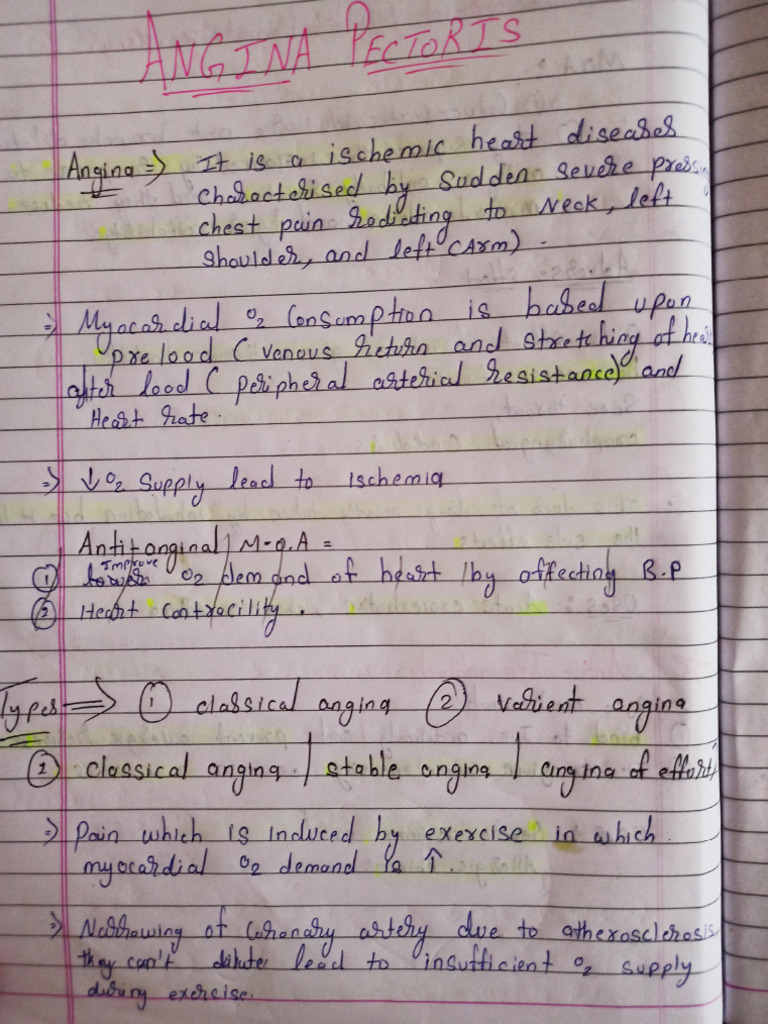 ANGINA PECTORIS
Angina => It is a ischemic heart diseases
characterised by Sudden severe
chest pain radiating to Neck, left
Shoulder, and left (Arm).
=> Myocardial O2 Consumption is based upon
preload (venous return and stretching of
after load (peripheral arterial resistance) and
Heart rate.
=> ↓ O2 Supply lead to Ischemia
Antitanginal / M.O.A =
Improve
① O2 demand of heart / by affecting B.P
② Heart Contracility.
Types => ① classical angina ② varient angina
② classical angina / stable angina / angina of effort/
=> Pain which is induced by exercise in which
myocardial O2 demand is ↑.
=> Narrowing of Coronary artery due to atherosclerosis
they can't dilute lead to insufficient O2 supply
during exercise.